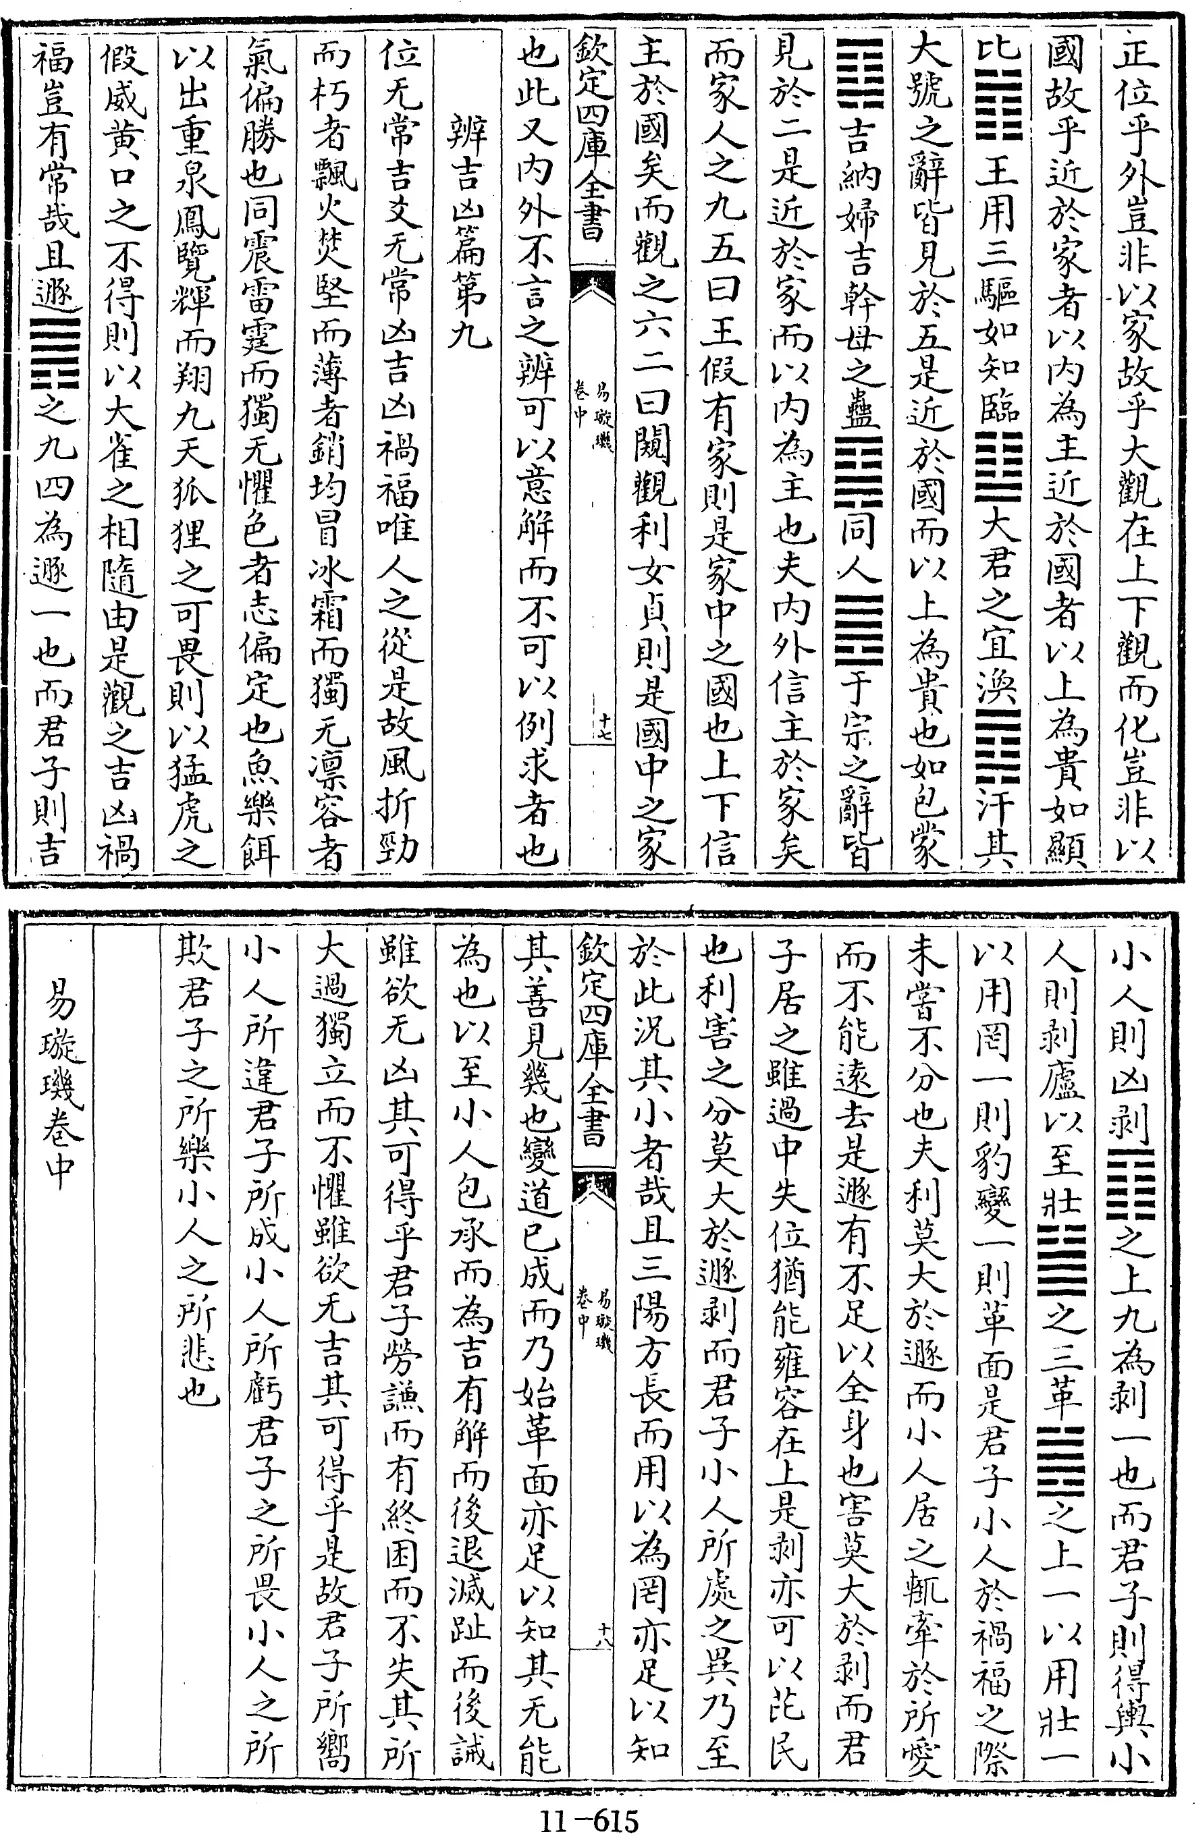 正位乎外豈非以家故乎大觀在上下觀而化豈非以
國故乎近於家者以内為主近於國者以上為貴如顯
比䷇王用三驅如知臨䷒大君之宜渙䷺汗其
大號之辭皆見於五是近於國而以上為貴也如包蒙
䷃吉納婦吉幹母之蠱䷑同人䷌于宗之辭皆
見於二是近於家而以内為主也夫内外信主於家矣
而家人之九五曰王假有家則是家中之國也上下信
主於國矣而觀之六二曰闚觀利女貞則是國中之家
欽定四庫全書
易璇璣
卷中
十七
也此又内外不言之辨可以意解而不可以例求者也
辨吉凶篇第九
位无常吉爻无常凶吉凶禍福唯人之從是故風折勁
而朽者飄火焚堅而薄者銷均冒冰霜而獨无凛容者
氣偏勝也同震雷霆而獨无懼色者志偏定也魚樂餌
以出重泉鳳覽輝而翔九天狐狸之可畏則以猛虎之
假威黄口之不得則以大雀之相隨由是觀之吉凶禍
福豈有常哉且遯䷠之九四為遯一也而君子則吉
小人則凶剥䷖之上九為剥一也而君子則得輿小
人則剥廬以至壯䷡之三革䷰之上一以用壯一
以用罔一則豹變一則革面是君子小人於禍福之際
未嘗不分也夫利莫大於遯而小人居之輒牽於所愛
而不能逺去是遯有不足以全身也害莫大於剥而君
子居之雖過中失位猶能雍容在上是剥亦可以芘民
也利害之分莫大於遯剥而君子小人所處之異乃至
於此况其小者哉且三陽方長而用以為罔亦足以知
欽定四庫全書
易璇璣
卷中
十八
其善見幾也變道已成而乃始革面亦足以知其无能
為也以至小人包承而為吉有解而後退滅趾而後誡
雖欲无凶其可得乎君子勞謙而有終困而不失其所
大過獨立而不懼雖欲无吉其可得乎是故君子所嚮
小人所違君子所成小人所虧君子之所畏小人之所
欺君子之所樂小人之所悲也
易璇璣卷中
11-615